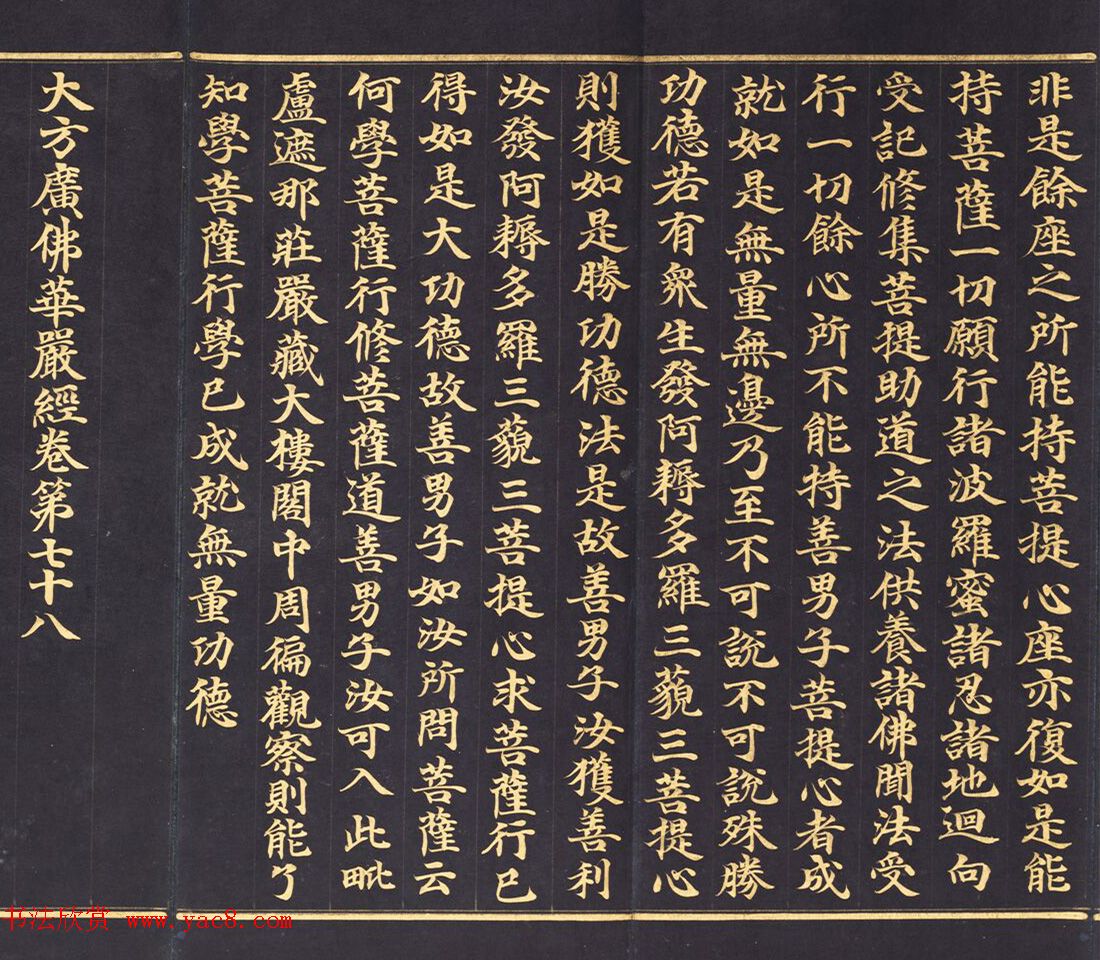 非是餘座之所能持菩提心座亦復如是能
持菩薩一切願行諸波羅蜜諸忍諸地迴向
受記修集菩提助道之法供養諸佛聞法受
行一切餘心所不能持善男子菩提心者成
就如是無量無邊乃至不可說不可說殊勝
功德若有衆生發阿耨多羅三藐三菩提心
則獲如是勝功德法是故善男子汝獲善利
汝發阿耨多羅三藐三菩提心求菩薩行已
得如是大功德故善男子如汝所問菩薩云
何學菩薩行修菩薩道善男子汝可入此毗
盧遮那莊嚴藏大樓閣中周徧觀察則能了
知學菩薩行學已成就無量功德
大方廣佛華嚴經卷第七十八
书法欣赏 www.yac8.com